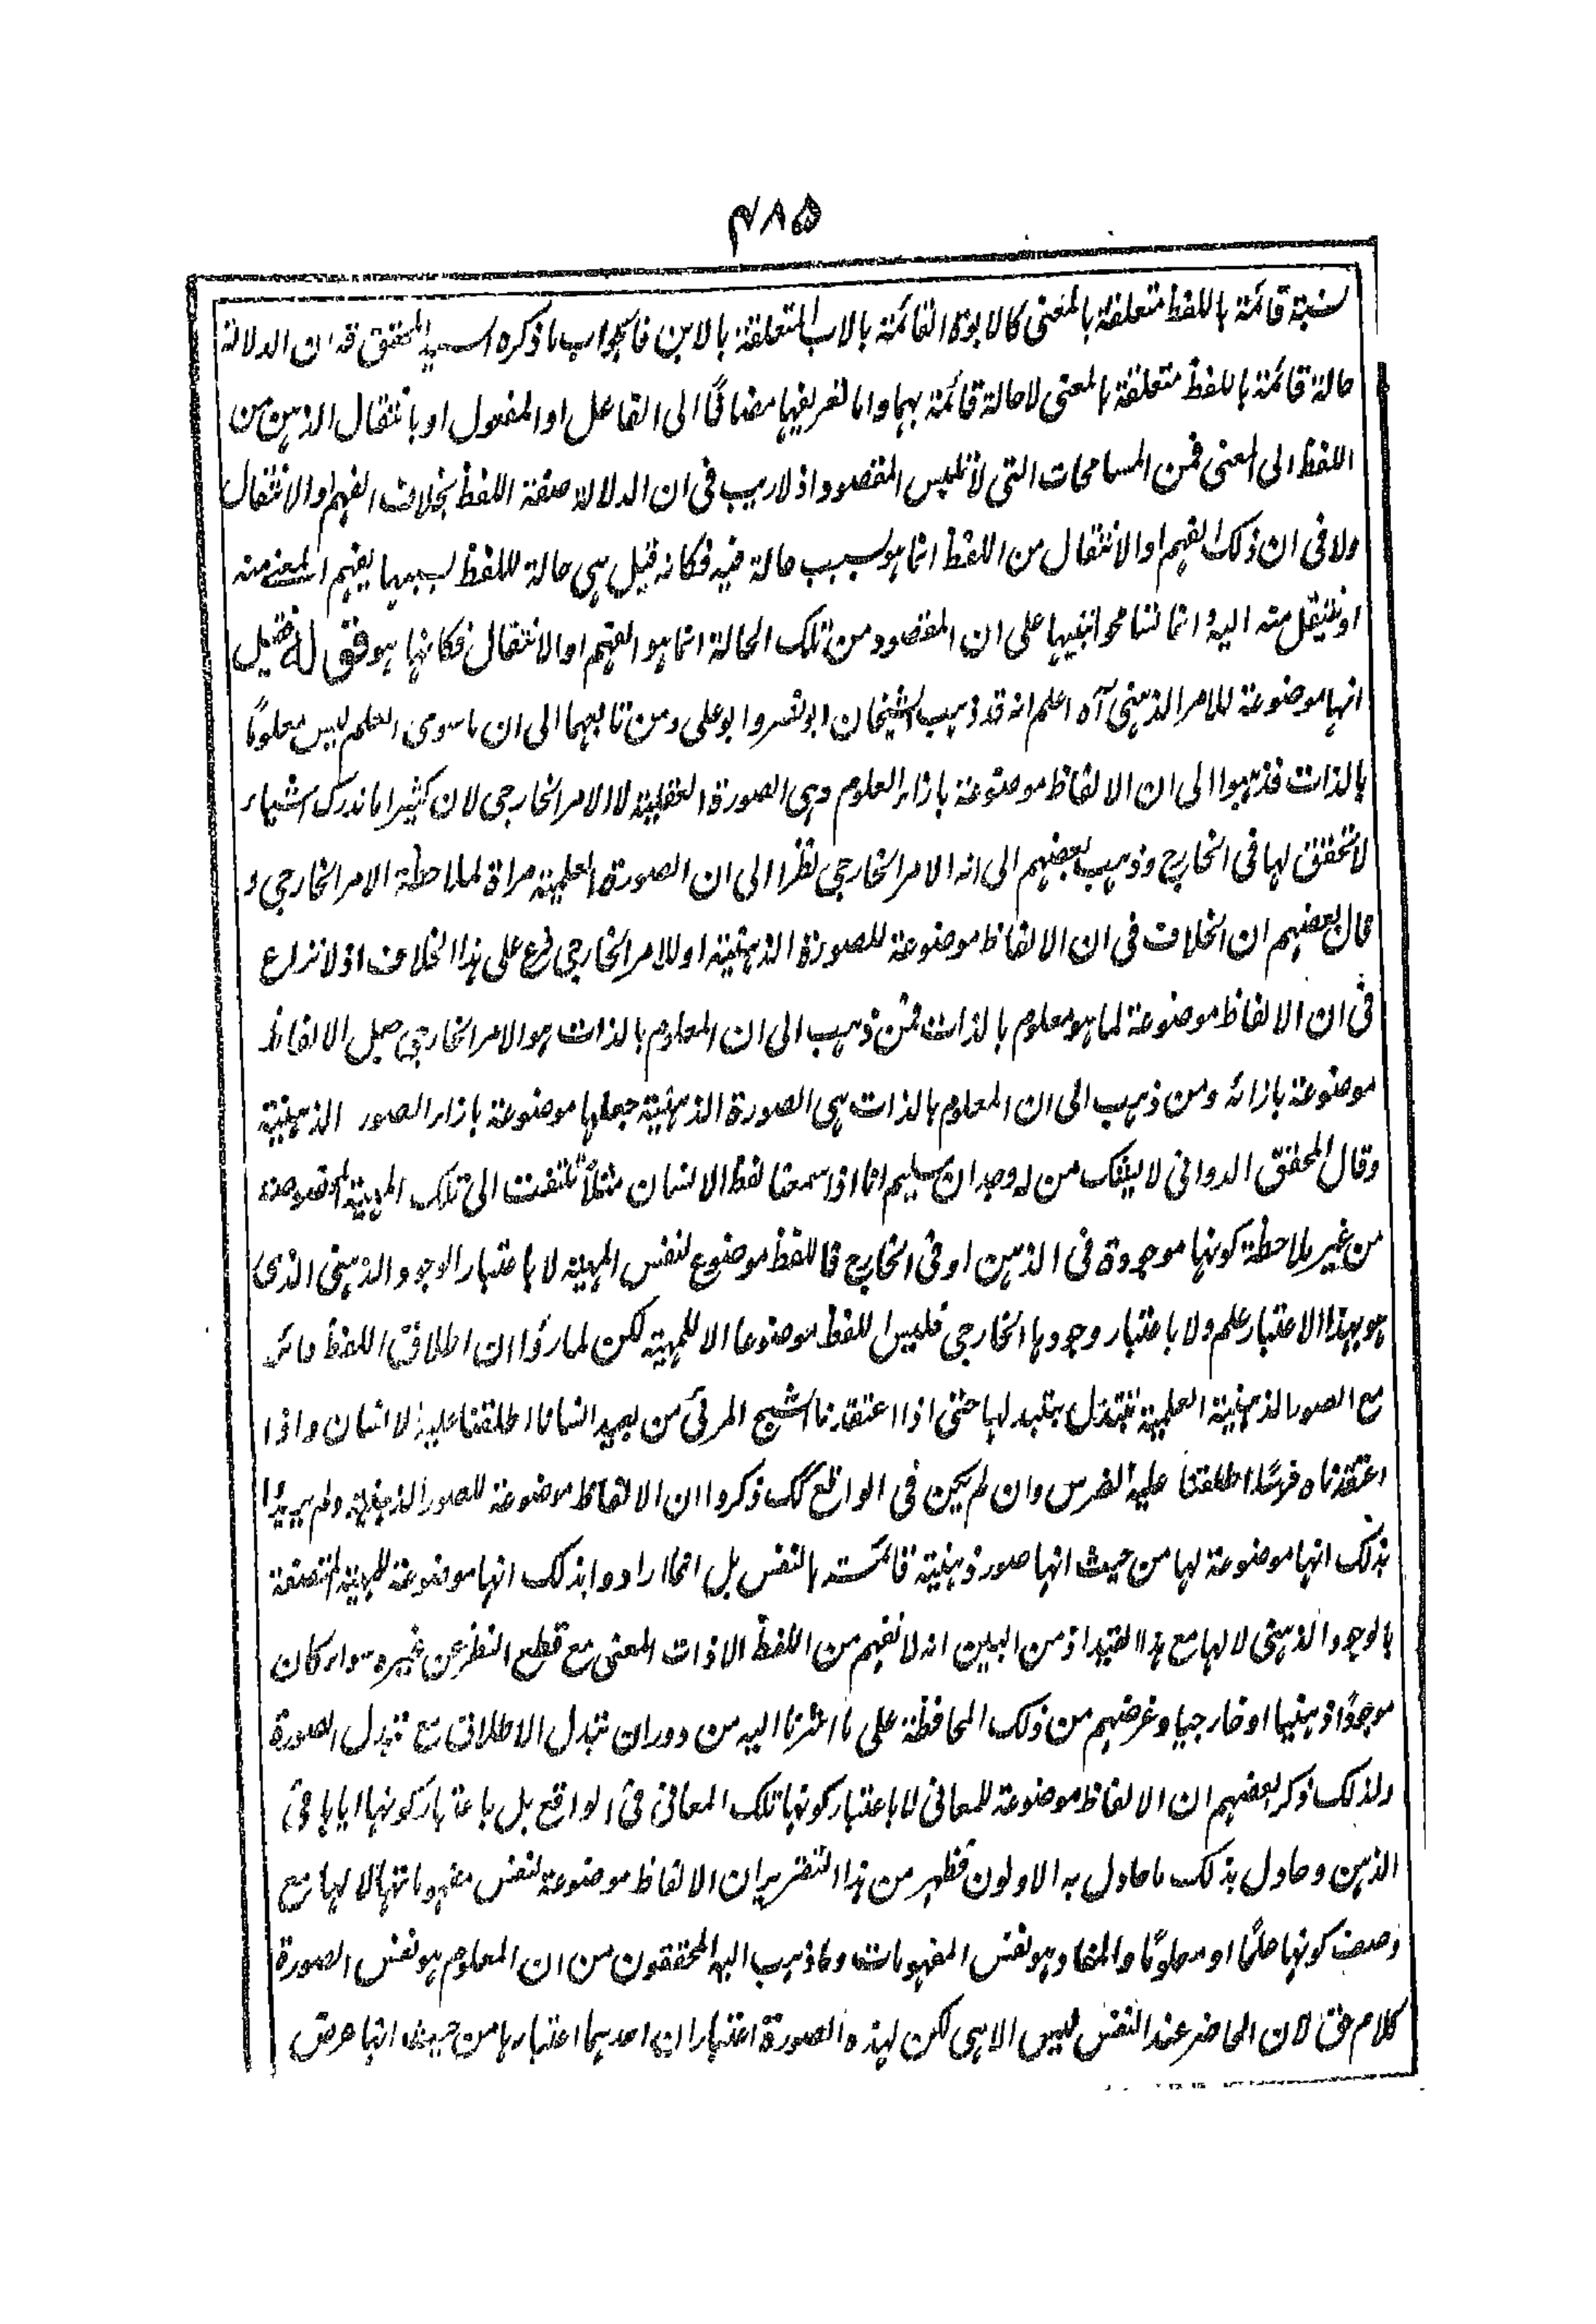 ۴۸۵
نسبة قائمة باللفظ متعلقة بالمعنى كالابوة القائمة بالاب المتعلقة بالابن فالجواب ما ذكره السيد المحقق قد ان الدلالة
حالة قائمة باللفظ متعلقة بالمعنى لا حالة قائمة بهما واما تعريفها مضافا الى الفاعل او المفعول او بانتقال الذهن من
اللفظ الى المعنى فمن المسامحات التي لا تلبس المقصود اذ لا ريب في ان الدلالة صفة اللفظ بخلاف الفهم او الانتقال
ولا في ان ذلك الفهم او الانتقال من اللفظ انما هو بسبب حالة فيه فكانه قيل هي حالة للفظ بسببها يفهم المعنى منه
او ينتقل منه اليه وانما تسامحوا تنبيها على ان المقصود من تلك الحالة انما هو الفهم او الانتقال فكانها هو فق له فقيل
انها موضوعة للامر الذهني آه اعلم انه قد ذهب الشيخان ابو نصر وابو علي ومن تابعهما الى ان ما سوى العلم ليس معلومًا
بالذات فذهبوا الى ان الالفاظ موضوعة بازاء المعلوم وهي الصورة العقلية لا الامر الخارجي لان كثيرا ما ندرك اشياء
لا تحقق لها في الخارج وذهب بعضهم الى انه الامر الخارجي نظرا الى ان الصورة العلمية مراة لملاحظة الامر الخارجي و
قال بعضهم ان الخلاف في ان الالفاظ موضوعة للصورة الذهنية او للامر الخارجي فرع على هذا الخلاف اذ لا نزاع
في ان الالفاظ موضوعة لما هو معلوم بالذات فمن ذهب الى ان المعلوم بالذات هو الامر الخارجي جعل الالفاظ
موضوعة بازائه ومن ذهب الى ان المعلوم بالذات هي الصورة الذهنية جعلها موضوعة بازاء الصور الذهنية
وقال المحقق الدواني لا ينفك من له وجدان سليم انا اذا سمعنا لفظ الانسان مثلاً نلتفت الى تلك المهية المخصوصة
من غير ملاحظة كونها موجودة في الذهن او في الخارج فاللفظ موضوع لنفس المهية لا باعتبار الوجود الذهني الذي
هو بهذا الاعتبار علم ولا باعتبار وجودها الخارجي فليس اللفظ موضوعا الا للمهية لكن لما رأوا ان اطلاق اللفظ دائر
مع الصور الذهنية العلمية تتبدل بتبدلها حتى اذا اعتقدنا الشبح المرئي من بعيد انسانا اطلقنا عليه الانسان واذا
اعتقدناه فرسًا اطلقنا عليه الفرس وان لم يكن في الواقع كك ذكروا ان الالفاظ موضوعة للصور الذهنية ولم يريدوا
بذلك انها موضوعة لها من حيث انها صور ذهنية قائمة بالنفس بل انما ارادوا بذلك انها موضوعة للمهية المتصفة
بالوجود الذهني لا لها مع هذا القيد اذ من البين انه لا نفهم من اللفظ الا ذات المعنى مع قطع النظر عن غيره سواء كان
موجودًا ذهنيا او خارجيا وغرضهم من ذلك المحافظة على ما اشرنا اليه من دوران تبدل الاطلاق مع تبدل الصورة
ولذلك ذكر بعضهم ان الالفاظ موضوعة للمعاني لا باعتبار كونها تلك المعاني في الواقع بل باعتبار كونها اياها في
الذهن وحاول بذلك ما حاول به الاولون فظهر من هذا التقرير ان الالفاظ موضوعة لنفس مفهوماتها لا لها مع
وصف كونها علمًا او معلومًا والمفاد هو نفس المفهومات وما ذهب اليه المحققون من ان المعلوم هو نفس الصورة
كلام حق لان الحاضر عند النفس ليس الا هي لكن لهذه الصورة اعتباران احدهما اعتبارها من حيث انها عرض